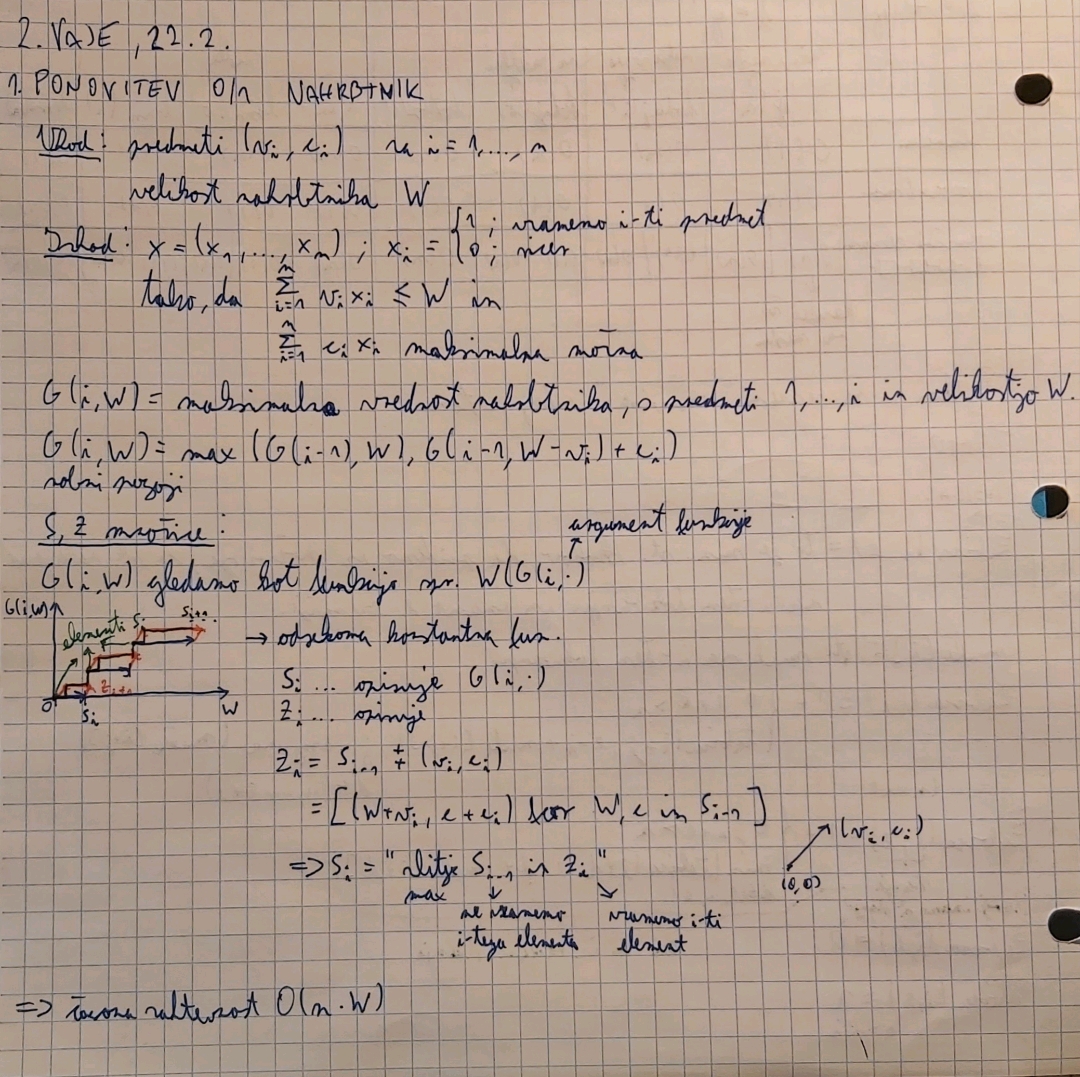 2. VAJE, 22.2.
1. PONOVITEV 0/1 NAHRBTNIK
Vhod: predmeti (v_i, c_i) za i = 1, ..., n
velikost nahrbtnika W
Izhod: x = (x_1, ..., x_n) ; x_i = { 1 ; vzamemo i-ti predmet
0 ; sicer
tako, da Σ_{i=1}^{n} v_i x_i ≤ W in
Σ_{i=1}^{n} c_i x_i maksimalna možna
G(i,W) = maksimalna vrednost nahrbtnika, s predmeti 1, ..., i in velikostjo W.
G(i,W) = max (G(i-1), W), G(i-1, W-v_i) + c_i)
robni pogoji
S, Z množice:
argument funkcije
↑
G(i,W) gledamo kot funkcijo W(G(i,·)
G(i,W)
elementi S_i
S_{i+1}
Z_{i+1}
0
S_i
W
→ odsekoma konstantna fun.
S_i ... opisuje G(i,·)
Z_i ... opisuje
Z_i = S_{i-1} ‡ (v_i, c_i)
= [(W+v_i, c+c_i) for W,c in S_{i-1}]
(v_i, c_i)
(0,0)
=> S_i = "zlitje S_{i-1} in Z_i"
max
ne vzamemo
i-tega elementa
vzamemo i-ti
element
=> časovna zahtevnost O(n·W)